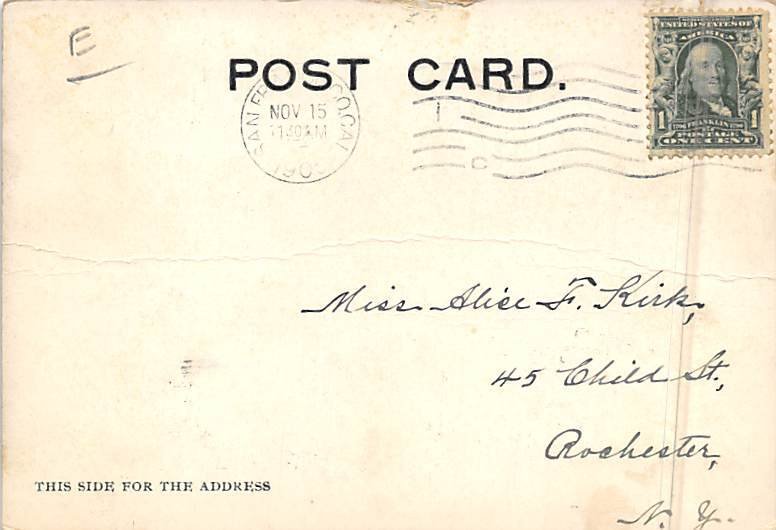 E
POST CARD.
NOV 15
1130 AM
C
SERIES 1902
UNITED STATES OF
AMERICA
1 FRANKLIN 1
POSTAGE
ONE CENT
Miss Alice F. Kirk,
45 Child St.,
Rochester,
N. Y.
THIS SIDE FOR THE ADDRESS